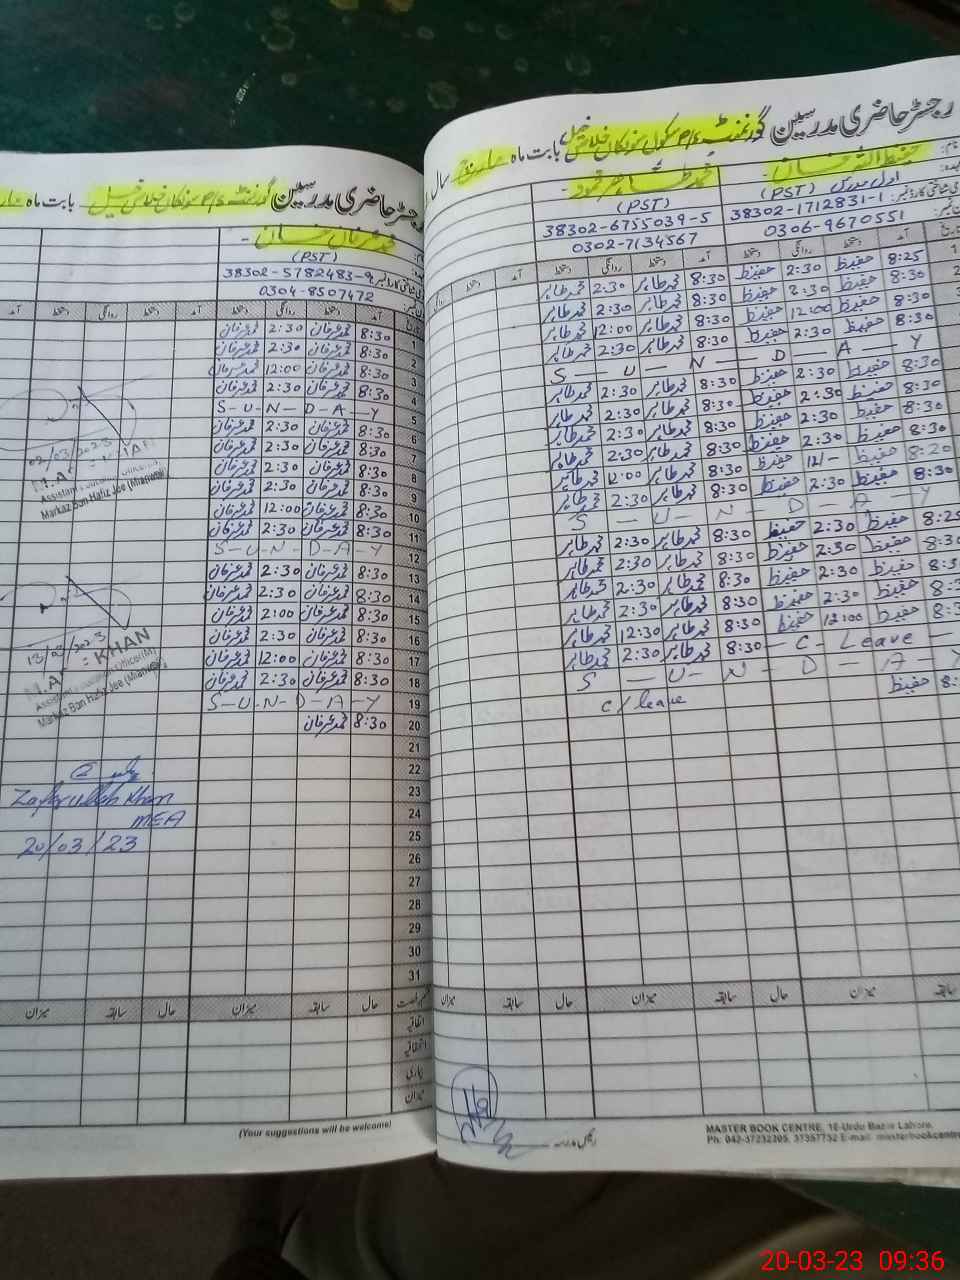 رجسٹر حاضری مدرسین گورنمنٹ
بابت ماہ
(PST)
38302-5782483-9
0304-8507472
آمد دستخط روانگی دستخط آمد دستخط روانگی دستخط آمد
1 8:30 محمد عرفان 2:30 محمد عرفان
2 8:30 محمد عرفان 2:30 محمد عرفان
3 8:30 محمد عرفان 12:00 محمد عرفان
4 8:30 محمد عرفان 2:30 محمد عرفان
5 S-U-N-D-A-Y
6 8:30 محمد عرفان 2:30 محمد عرفان
7 8:30 محمد عرفان 2:30 محمد عرفان
8 8:30 محمد عرفان 2:30 محمد عرفان
9 8:30 محمد عرفان 2:30 محمد عرفان
10 8:30 محمد عرفان 12:00 محمد عرفان
11 8:30 محمد عرفان 2:30 محمد عرفان
12 S-U-N-D-A-Y
13 8:30 محمد عرفان 2:30 محمد عرفان
14 8:30 محمد عرفان 2:30 محمد عرفان
15 8:30 محمد عرفان 2:00 محمد عرفان
16 8:30 محمد عرفان 2:30 محمد عرفان
17 8:30 محمد عرفان 12:00 محمد عرفان
18 8:30 محمد عرفان 2:30 محمد عرفان
19 S-U-N-D-A-Y
20 8:30 محمد عرفان
21
22
23
24
25
26
27
28
29
30
31
02/03/2023
Markaz Ban Hafiz Jee (Mianwali)
13/03/2023
M.A KHAN
Markaz Ban Hafiz Jee (Mianwali)
Zafarullah Khan
MEA
20/03/23
حال سابقہ میزان حال سابقہ میزان
اتفاقیہ
استحقاقیہ
بیماری
میزان
(Your suggestions will be welcome)
رجسٹر حاضری مدرسین گورنمنٹ
بابت ماہ
سال
(PST)
(PST)
38302-1712831-1
38302-6755039-5
0306-9670551
0302-7134567
آمد دستخط روانگی دستخط آمد دستخط روانگی دستخط
8:25 حفیظ 2:30 حفیظ 8:30 محمد طاہر 2:30 محمد طاہر
8:30 حفیظ 2:30 حفیظ 8:30 محمد طاہر 2:30 محمد طاہر
8:30 حفیظ 12:00 حفیظ 8:30 محمد طاہر 12:00 محمد طاہر
8:30 حفیظ 2:30 حفیظ 8:30 محمد طاہر 2:30 محمد طاہر
S-U-N-D-A-Y
8:30 حفیظ 2:30 حفیظ 8:30 محمد طاہر 2:30 محمد طاہر
8:30 حفیظ 2:30 حفیظ 8:30 محمد طاہر 2:30 محمد طاہر
8:30 حفیظ 2:30 حفیظ 8:30 محمد طاہر 2:30 محمد طاہر
8:30 حفیظ 2:30 حفیظ 8:30 محمد طاہر 2:30 محمد طاہر
8:20 حفیظ 12/- حفیظ 8:30 محمد طاہر 12:00 محمد طاہر
8:30 حفیظ 2:30 حفیظ 8:30 محمد طاہر 2:30 محمد طاہر
S-U-N-D-A-Y
8:25 حفیظ 2:30 حفیظ 8:30 محمد طاہر 2:30 محمد طاہر
8:30 حفیظ 2:30 حفیظ 8:30 محمد طاہر 2:30 محمد طاہر
حفیظ 2:30 حفیظ 8:30 محمد طاہر 2:30 محمد طاہر
حفیظ 2:30 حفیظ 8:30 محمد طاہر 2:30 محمد طاہر
حفیظ 12:00 حفیظ 8:30 محمد طاہر 12:30 محمد طاہر
C - Leave - 8:30 محمد طاہر 2:30 محمد طاہر
S-U-N-D-A-Y
حفیظ
c/leave
سابقہ میزان حال سابقہ میزان حال سابقہ میزان
MASTER BOOK CENTRE, 16-Urdu Bazar Lahore.
Ph: 042-37232305, 37357752 E-mail: masterbookcentre
رئیس مدرسہ
20-03-23 09:36